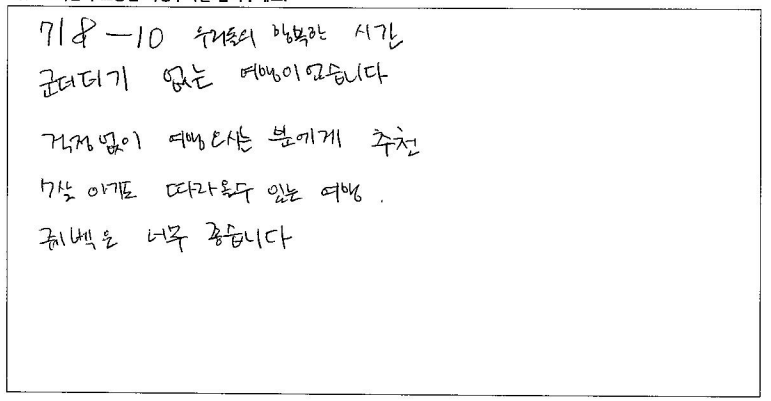 7/8-10 우리들의 행복한 시간
군더더기 없는 여행이였습니다
걱정없이 여행오시는 분에게 추천
7살 아기도 따라올수 있는 여행.
퀘벡은 너무 좋습니다